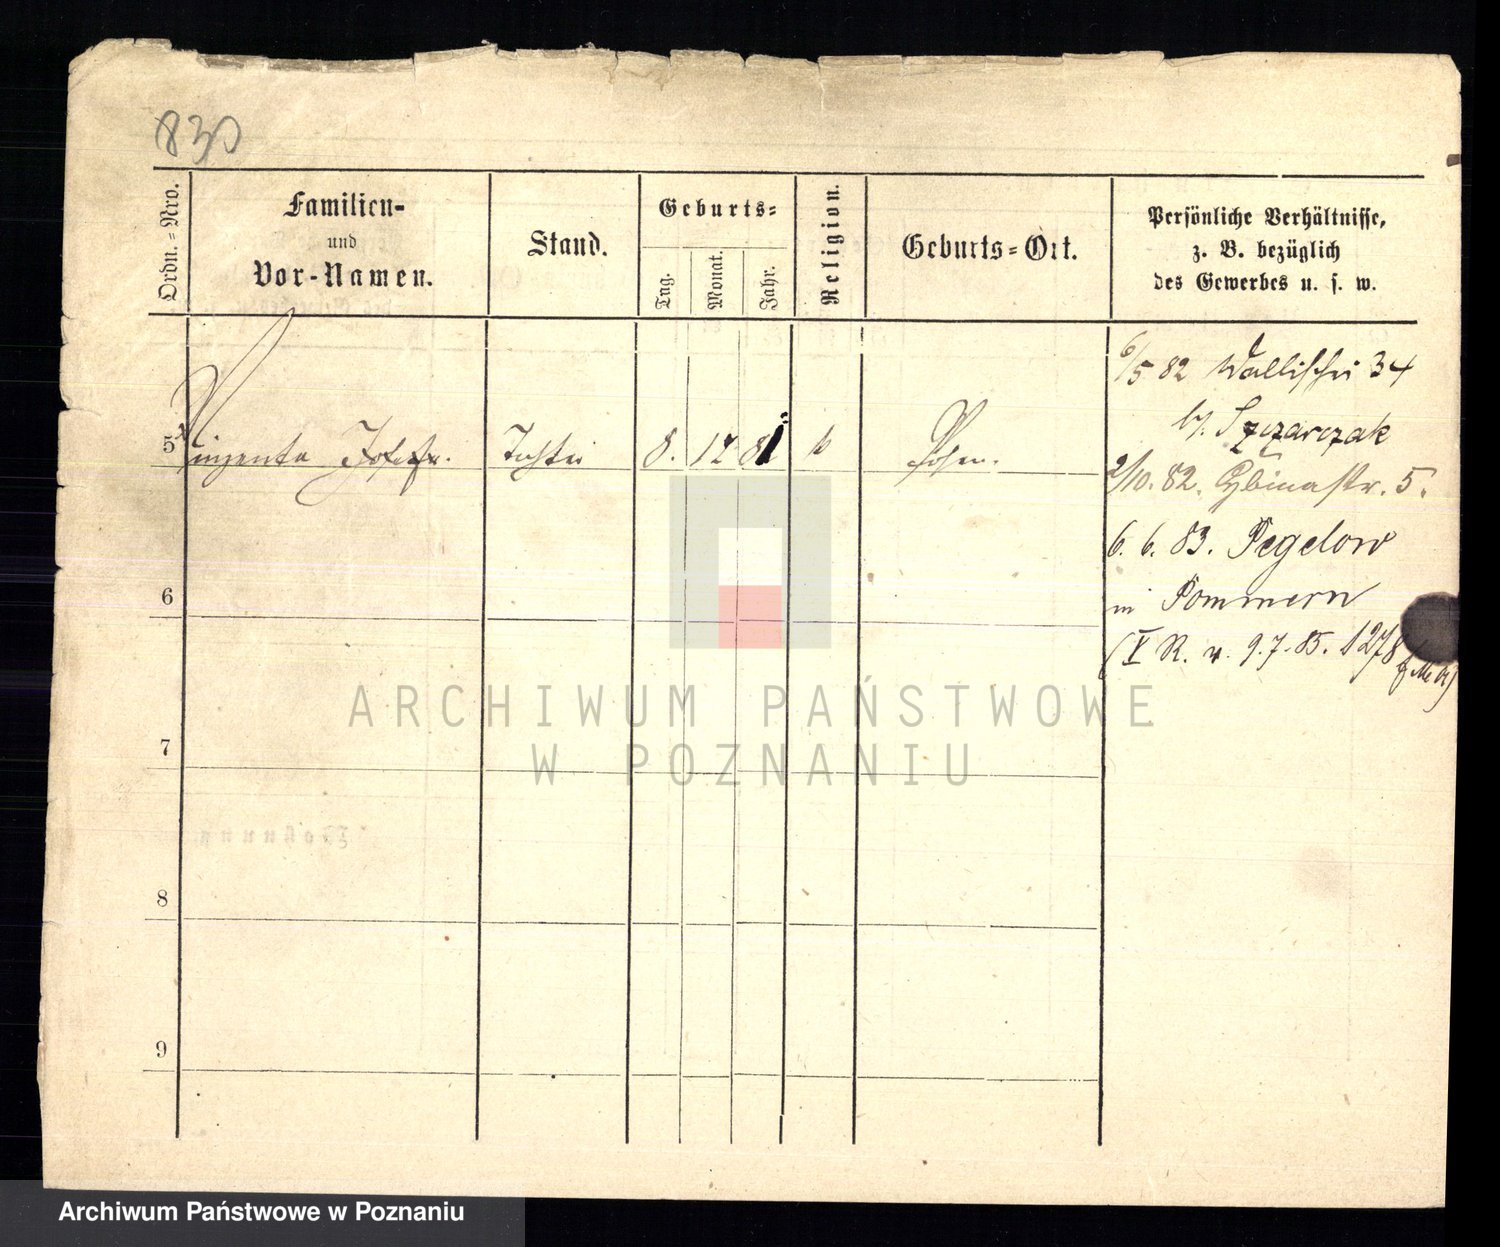 830
Ordn.=Nro.
Familien-
und
Vor-Namen.
Stand.
Geburts=
Tag.
Monat.
Jahr.
Religion.
Geburts=Ort.
Persönliche Verhältnisse,
z. B. bezüglich
des Gewerbes u. s. w.
5 Vinzenta Josefa. Tochter 8. 12 81 k Posen.
6/5 82 Wallischei 34
b/. Szczarczak
2/10. 82. 5.
6. 6. 83. Pegelow
in Pommern
(V R. v. 9.7.85. 1278
6
7
8
9
ARCHIWUM PAŃSTWOWE
W POZNANIU
Archiwum Państwowe w Poznaniu